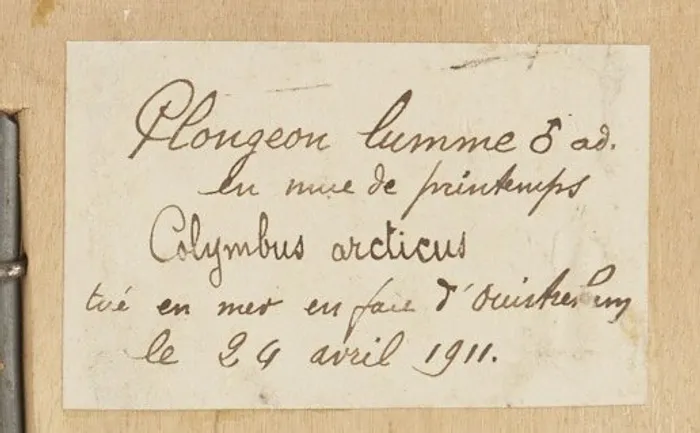 Plongeon lumme ♂ ad.
en mue de printemps
Colymbus arcticus
tué en mer en face d'Ouistreham
le 24 avril 1911.